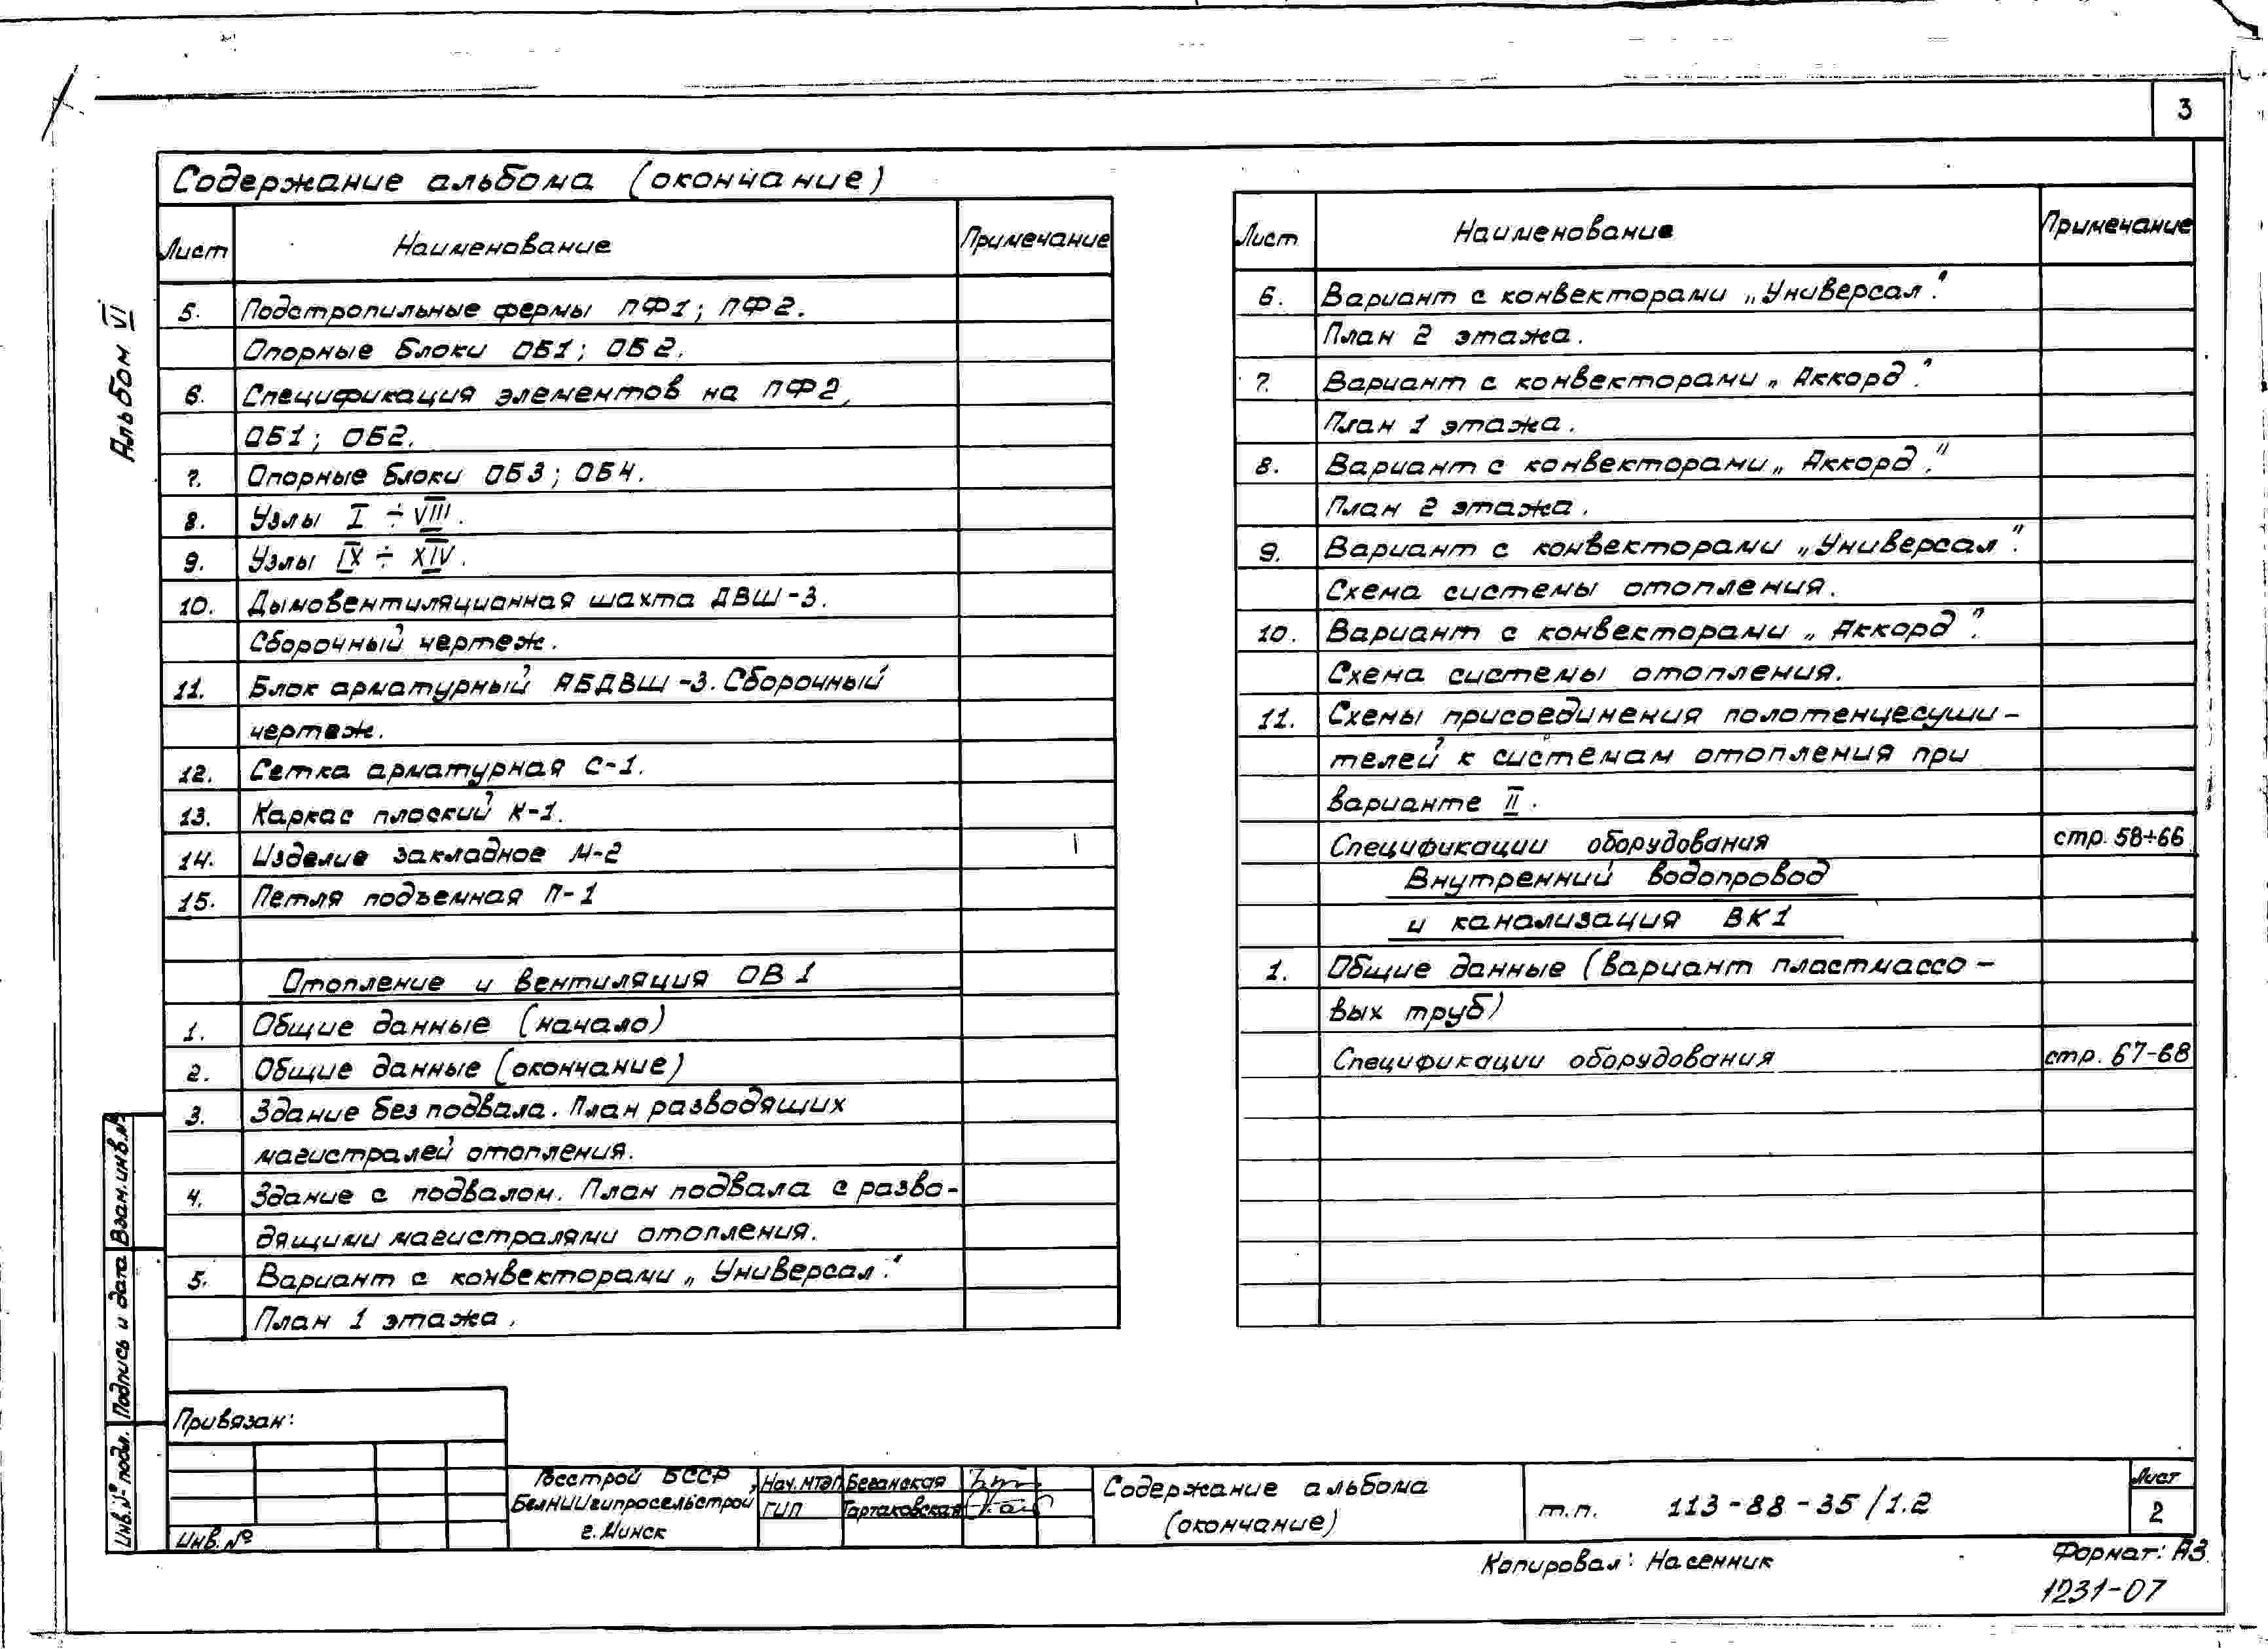 3
Содержание альбома (окончание)
Лист Наименование Примечание
5. Подстропильные фермы ПФ1; ПФ2.
Опорные блоки ОБ1; ОБ2.
6. Спецификация элементов на ПФ2,
ОБ1; ОБ2.
7. Опорные блоки ОБ3; ОБ4.
8. Узлы I ÷ VIII.
9. Узлы IX ÷ XIV.
10. Дымовентиляционная шахта ДВШ-3.
Сборочный чертеж.
11. Блок арматурный АБДВШ-3. Сборочный
чертеж.
12. Сетка арматурная С-1.
13. Каркас плоский К-1.
14. Изделие закладное М-2
15. Петля подъемная П-1
Отопление и вентиляция ОВ1
1. Общие данные (начало)
2. Общие данные (окончание)
3. Здание без подвала. План разводящих
магистралей отопления.
4. Здание с подвалом. План подвала с разво-
дящими магистралями отопления.
5. Вариант с конвекторами „Универсал".
План 1 этажа.
Лист Наименование Примечание
6. Вариант с конвекторами „Универсал".
План 2 этажа.
7. Вариант с конвекторами „Аккорд".
План 1 этажа.
8. Вариант с конвекторами „Аккорд".
План 2 этажа.
9. Вариант с конвекторами „Универсал".
Схема системы отопления.
10. Вариант с конвекторами „Аккорд".
Схема системы отопления.
11. Схемы присоединения полотенцесуши-
телей к системам отопления при
варианте II.
Спецификации оборудования стр. 58÷66
Внутренний водопровод
и канализация ВК1
1. Общие данные (вариант пластмассо-
вых труб)
Спецификации оборудования стр. 67-68
Альбом VI
Взам. инв. №
Подпись и дата
Инв. № подл.
Привязан:
Инв. №
Госстрой БССР
БелНИИгипросельстрой
г. Минск
Нач. МТЭП Беганская
ГИП Тартаковская
Содержание альбома
(окончание)
т.п. 113-88-35/1.2
Лист
2
Копировал: Насенник
Формат: А3
1231-07